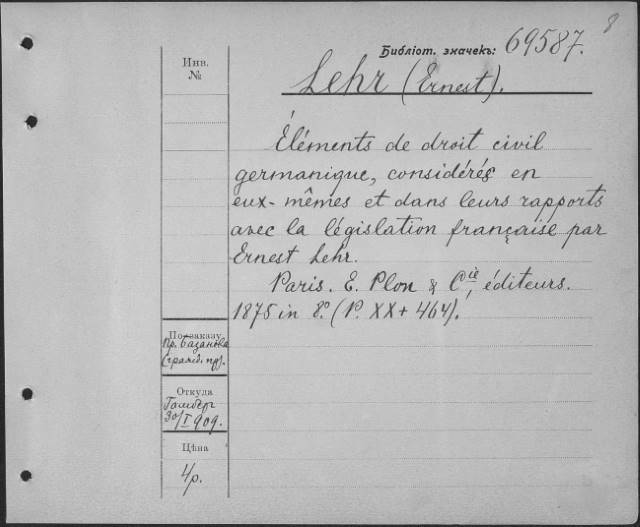 8
Библіот. значекъ: 69587.
Инв.
№
Lehr (Ernest).
Éléments de droit civil
germanique, considérés en
eux-mêmes et dans leurs rapports
avec la législation française par
Ernest Lehr.
Paris. E. Plon & Cie, éditeurs.
1875 in 8º. (P. XX + 464).
По заказу
Пр. Базанова
(гражд. пр).
Откуда
30/I 909.
Цѣна
4р.